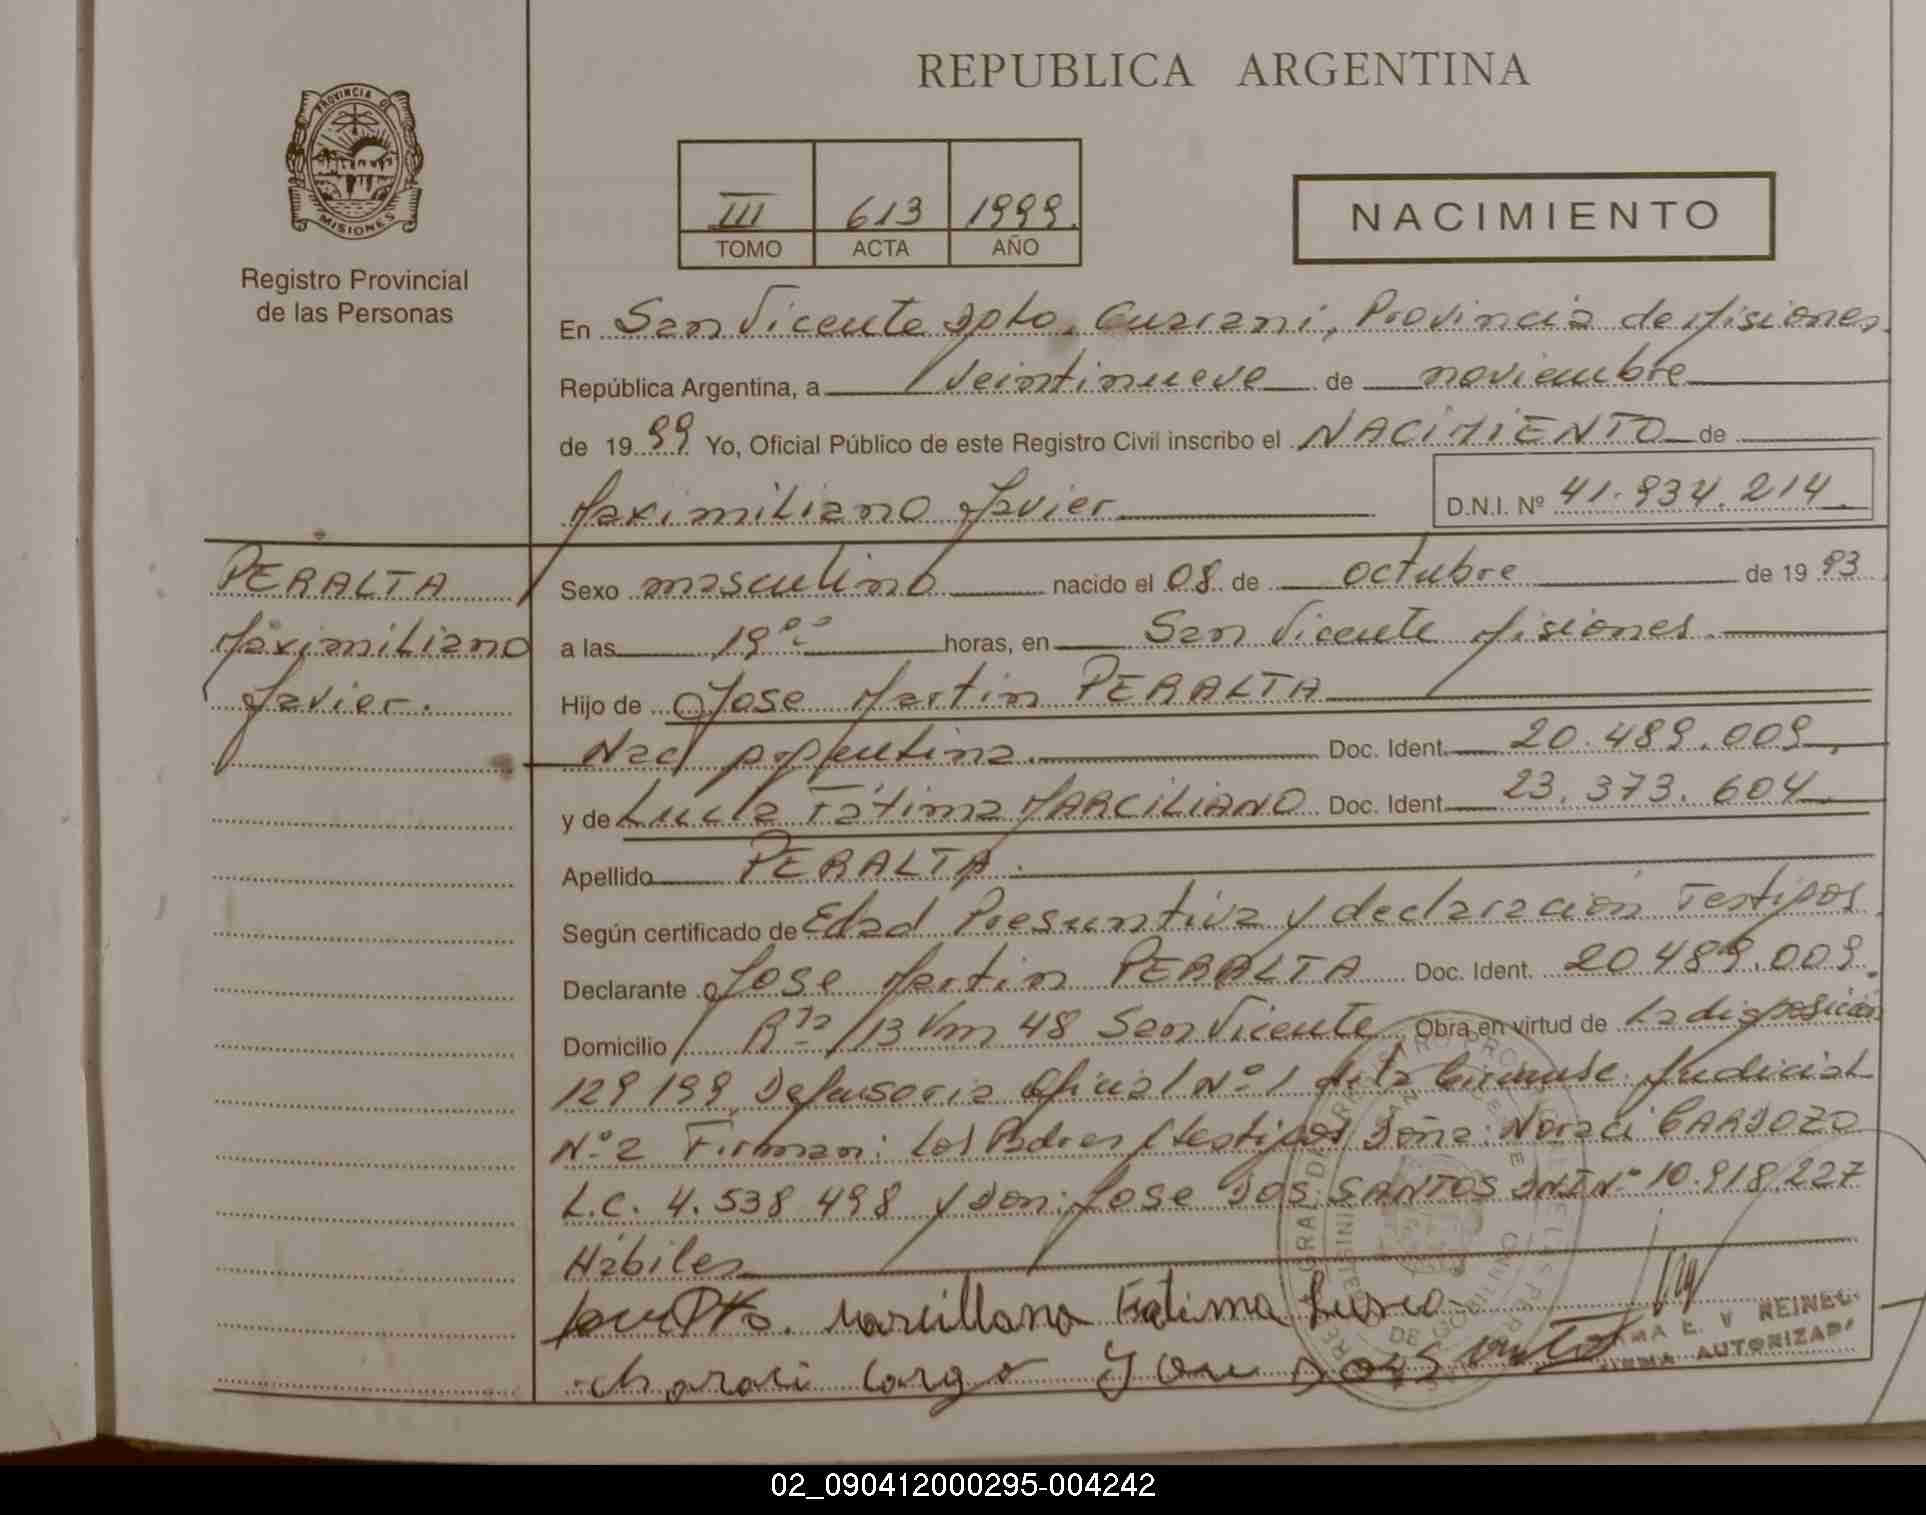 REPUBLICA ARGENTINA
PROVINCIA DE
MISIONES
Registro Provincial
de las Personas
III 613 1999.
TOMO ACTA AÑO
NACIMIENTO
En San Vicente Dpto. Guarani, Provincia de Misiones.
República Argentina, a veintinueve de noviembre
de 1999 Yo, Oficial Público de este Registro Civil inscribo el NACIMIENTO de
Maximiliano Javier D.N.I. Nº 41.934.214.
PERALTA
Maximiliano
Javier.
Sexo masculino nacido el 08 de octubre de 1993
a las 19 00 horas, en San Vicente Misiones.
Hijo de Jose Martin PERALTA
Nac. Argentina. Doc. Ident. 20.489.009.
y de Lucia Fátima MARCILIANO Doc. Ident. 23.373.604.
Apellido PERALTA.
Según certificado de Edad Presuntiva y declaración Testigos.
Declarante Jose Martin PERALTA Doc. Ident. 20489.009.
Domicilio Rta 13 Km 48 San Vicente Obra en virtud de La disposición
129/99, Defensoria Oficial Nº 1 de la Circunsc. Judicial
Nº 2 Firman: Los Padres y testigos Doña: Noraci CARDOZO
L.C. 4.538 498 y Don: Jose DOS SANTOS DNI Nº 10.918.227
Hábiles
Fatima
E. V REINEL
FIRMA AUTORIZADA
02_090412000295-004242